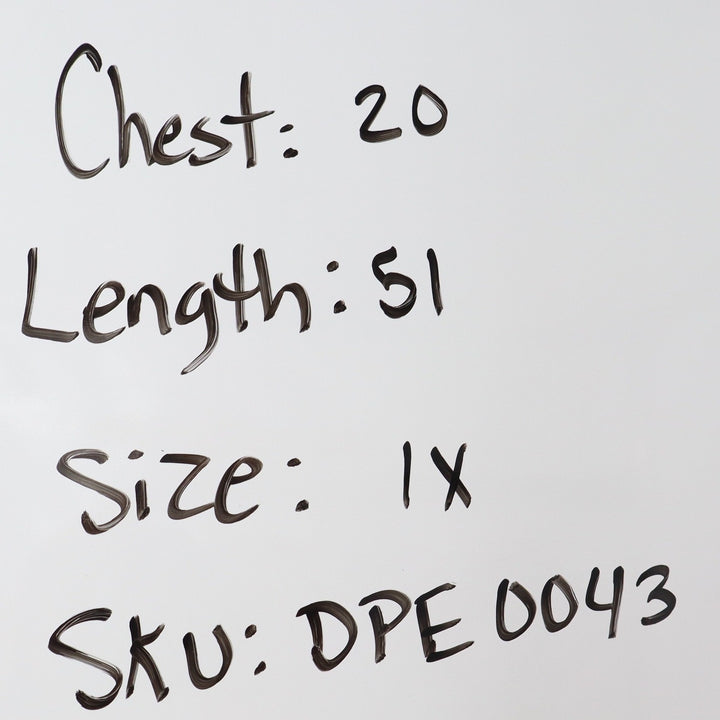 Chest: 20
Length: 51
Size: 1X
SKU: DPE 0043